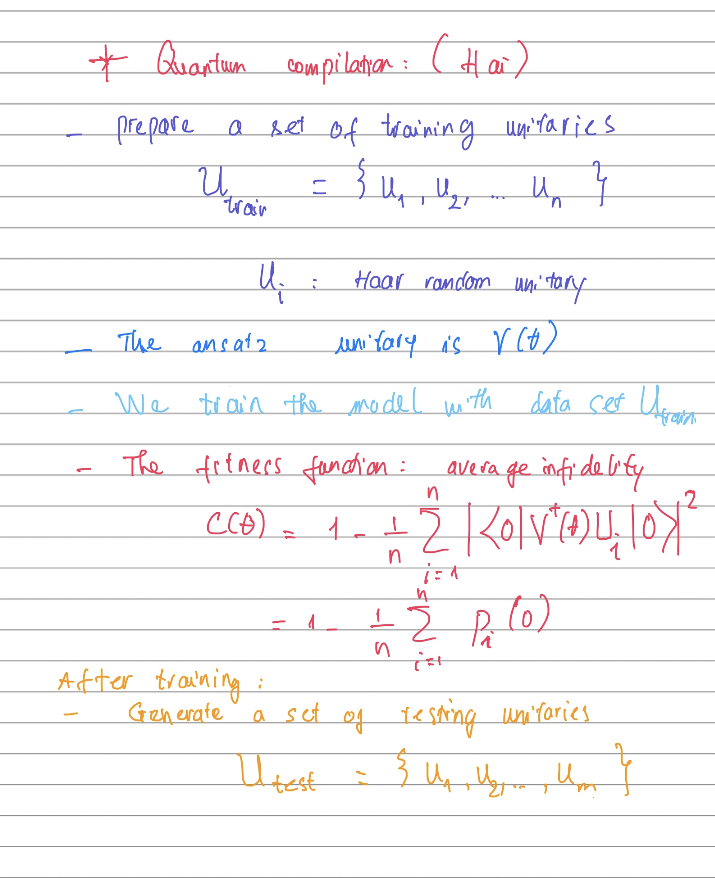 * Quantum compilation: (Hai)
- prepare a set of training unitaries
U_train = { u_1, u_2, ... u_n }
U_i : Haar random unitary
- The ansatz unitary is V(θ)
- We train the model with data set U_train
- The fitness function: average infidelity
C(θ) = 1 - 1/n Σ_{i=1}^{n} |<0|V^†(θ)U_i|0>|^2
= 1 - 1/n Σ_{i=1}^{n} p_i(0)
After training:
- Generate a set of testing unitaries
U_test = { u_1, u_2, .., u_m }